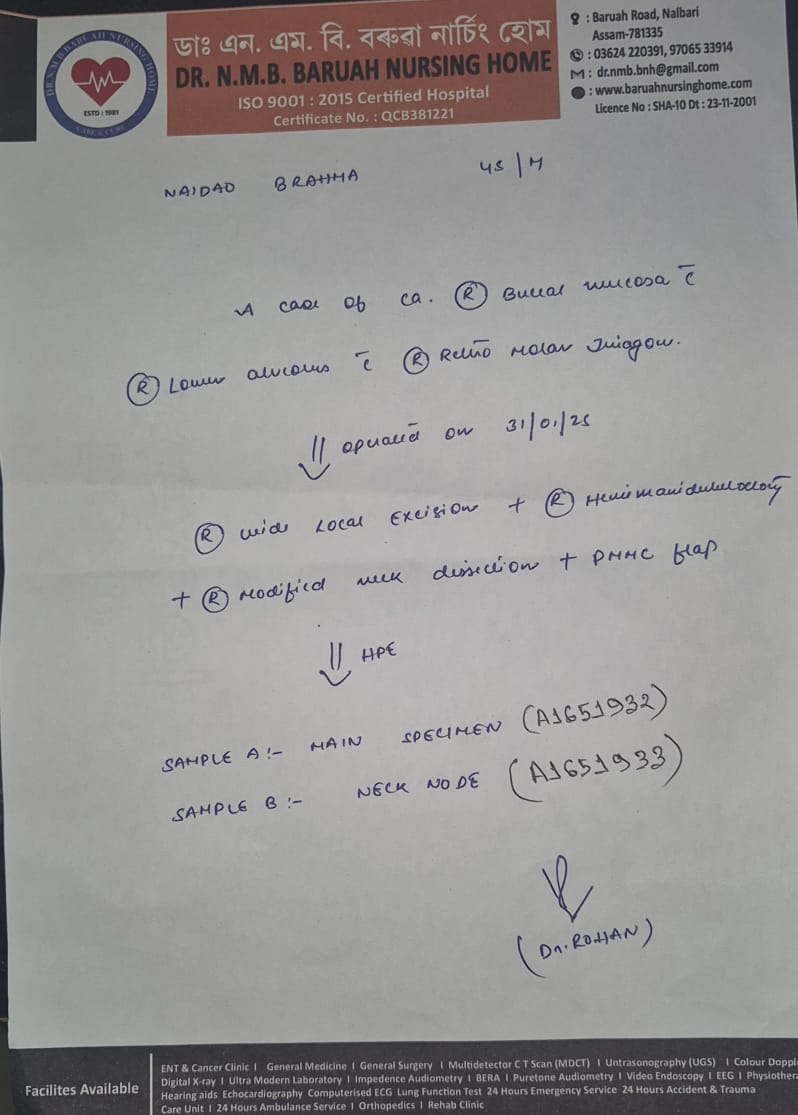 ডাঃ এন. এম. বি. বৰুৱা নাৰ্চিং হোম
DR. N.M.B. BARUAH NURSING HOME
ISO 9001 : 2015 Certified Hospital
Certificate No. : QCB381221
DR. N.M.B. BARUAH NURSING HOME
ESTD : 1981
CARE & CURE
: Baruah Road, Nalbari
Assam-781335
: 03624 220391, 97065 33914
M : dr.nmb.bnh@gmail.com
: www.baruahnursinghome.com
Licence No : SHA-10 Dt : 23-11-2001
NAIDAO BRAHMA 45/M
A case of ca. (R) Buccal mucosa c̄
(R) Lower alveolus c̄ (R) Retro Molar Triagon.
⇓ operated on 31/01/25
(R) wide Local Excision + (R) Hemimandibulectomy
+ (R) Modified neck dissection + PMMC flap
⇓ HPE
SAMPLE A :- MAIN SPECIMEN (A1651932)
SAMPLE B :- NECK NODE (A1651933)
(Dr. ROHAN)
Facilites Available
ENT & Cancer Clinic I General Medicine I General Surgery I Multidetector C T Scan (MDCT) I Untrasonography (UGS) I Colour Doppl
Digital X-ray I Ultra Modern Laboratory I Impedence Audiometry I BERA I Puretone Audiometry I Video Endoscopy I EEG I Physiother
Hearing aids Echocardiography Computerised ECG Lung Function Test 24 Hours Emergency Service 24 Hours Accident & Trauma
Care Unit I 24 Hours Ambulance Service I Orthopedics I Rehab Clinic